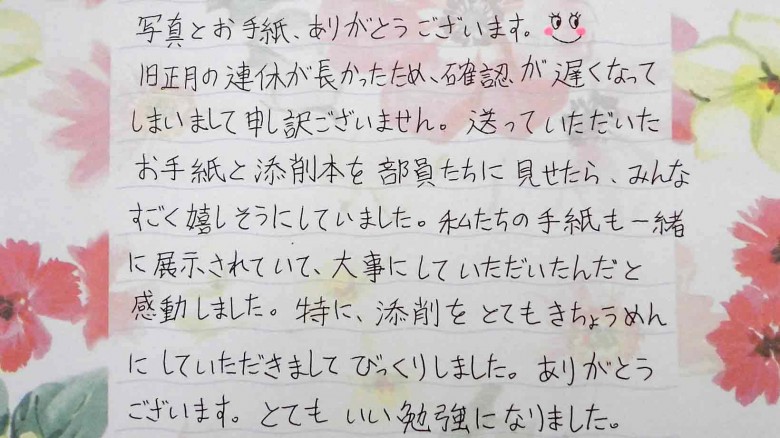 写真とお手紙、ありがとうございます。
旧正月の連休が長かったため、確認が遅くなって
しまいまして申し訳ございません。送っていただいた
お手紙と添削本を部員たちに見せたら、みんな
すごく嬉しそうにしていました。私たちの手紙も一緒
に展示されていて、大事にしていただいたんだと
感動しました。特に、添削をとてもきちょうめん
にしていただきましてびっくりしました。ありがとう
ございます。とてもいい勉強になりました。